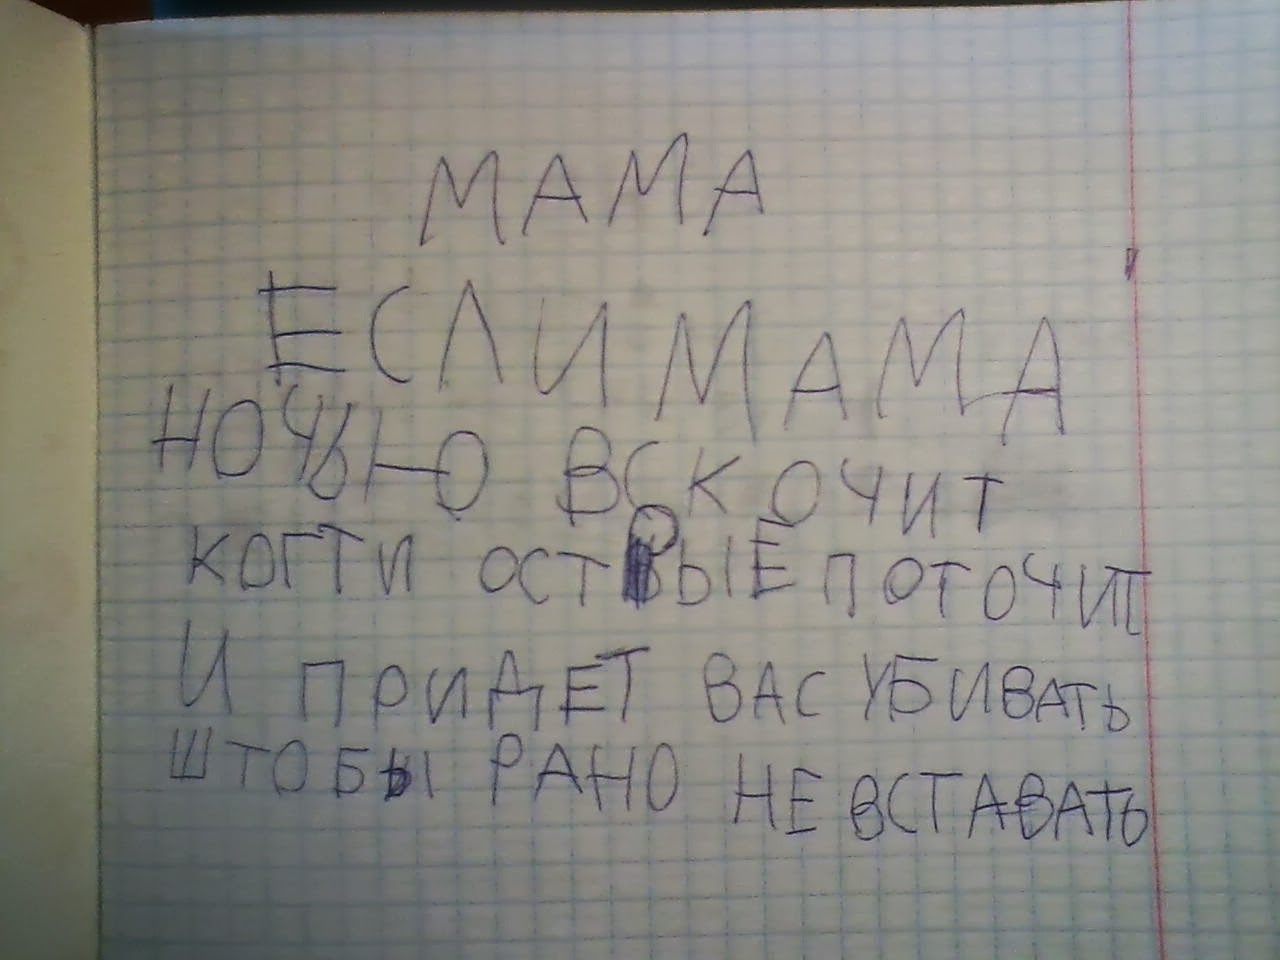 МАМА
ЕСЛИ МАМА
НОЧЬЮ ВСКОЧИТ
КОГТИ ОСТРЫЕ ПОТОЧИТ
И ПРИДЕТ ВАС УБИВАТЬ
ШТОБЫ РАНО НЕ ВСТАВАТЬ